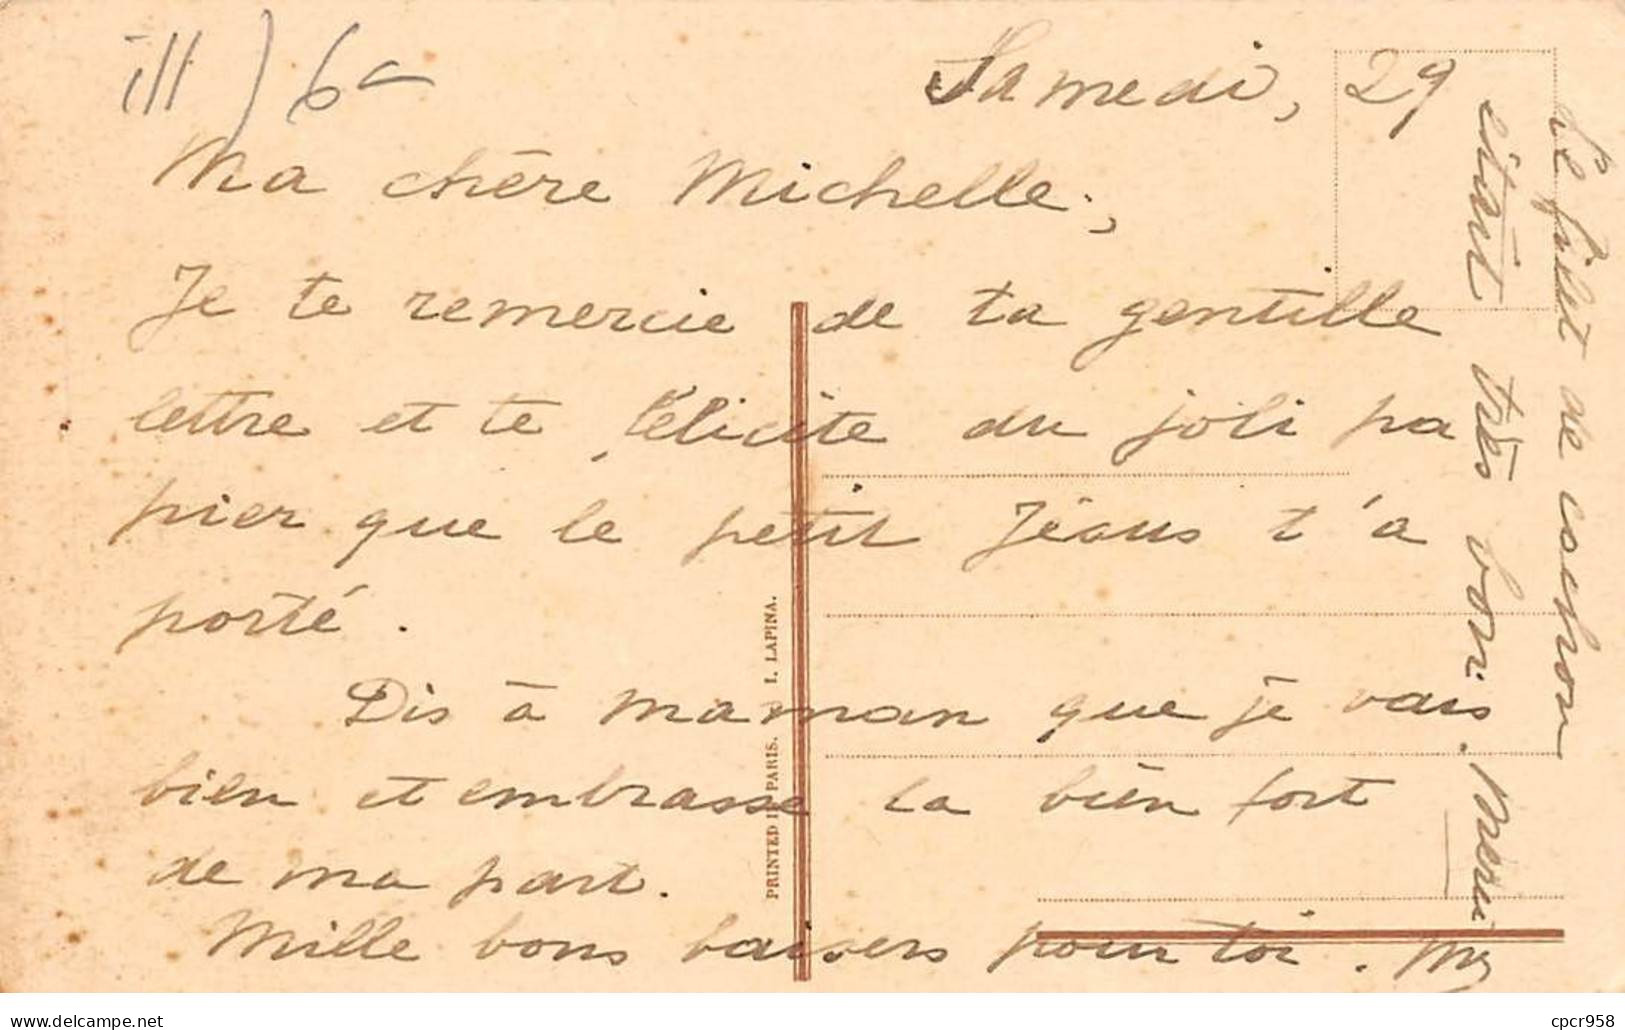 ill) 6
Samedi, 29
Ma chère Michelle,
Je te remercie de ta gentille
lettre et te félicite du joli pa
pier que le petit Jésus t'a
porté.
Dis à maman que je vais
bien et embrasse la bien fort
de ma part.
Mille bons baisers pour toi.
Le filet de cochon
était très bon. Merci
PRINTED IN PARIS. I. LAPINA.
www.delcampe.net
cpcr958